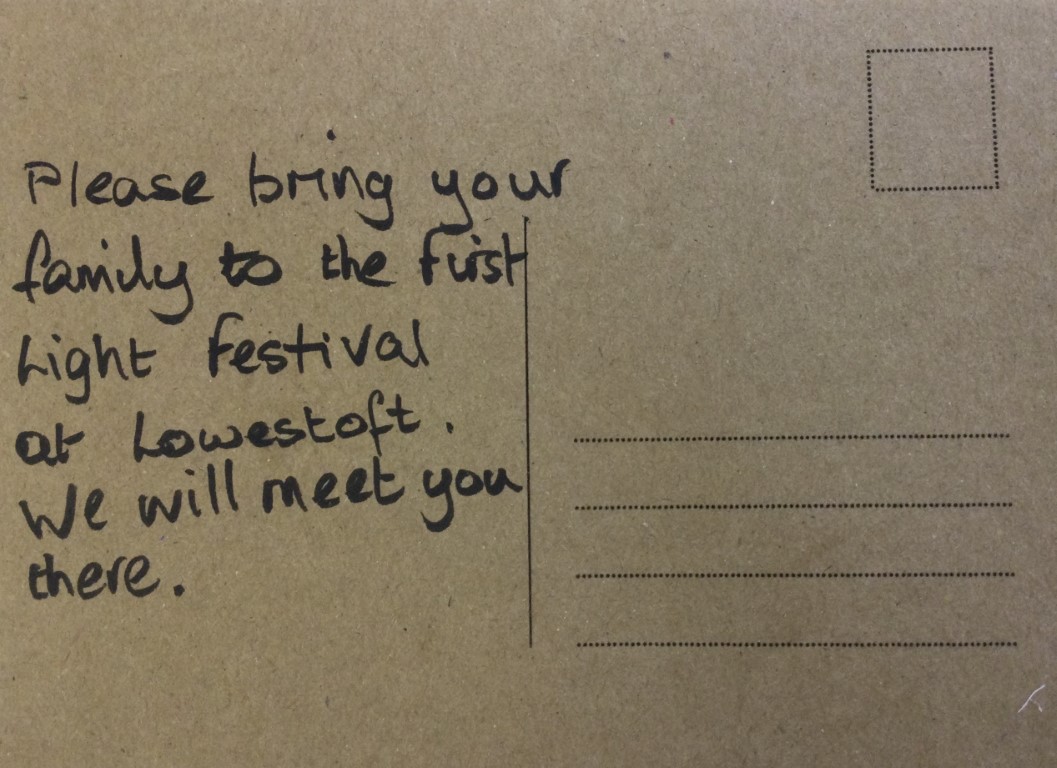 Please bring your
family to the First
Light Festival
at Lowestoft.
We will meet you
there.